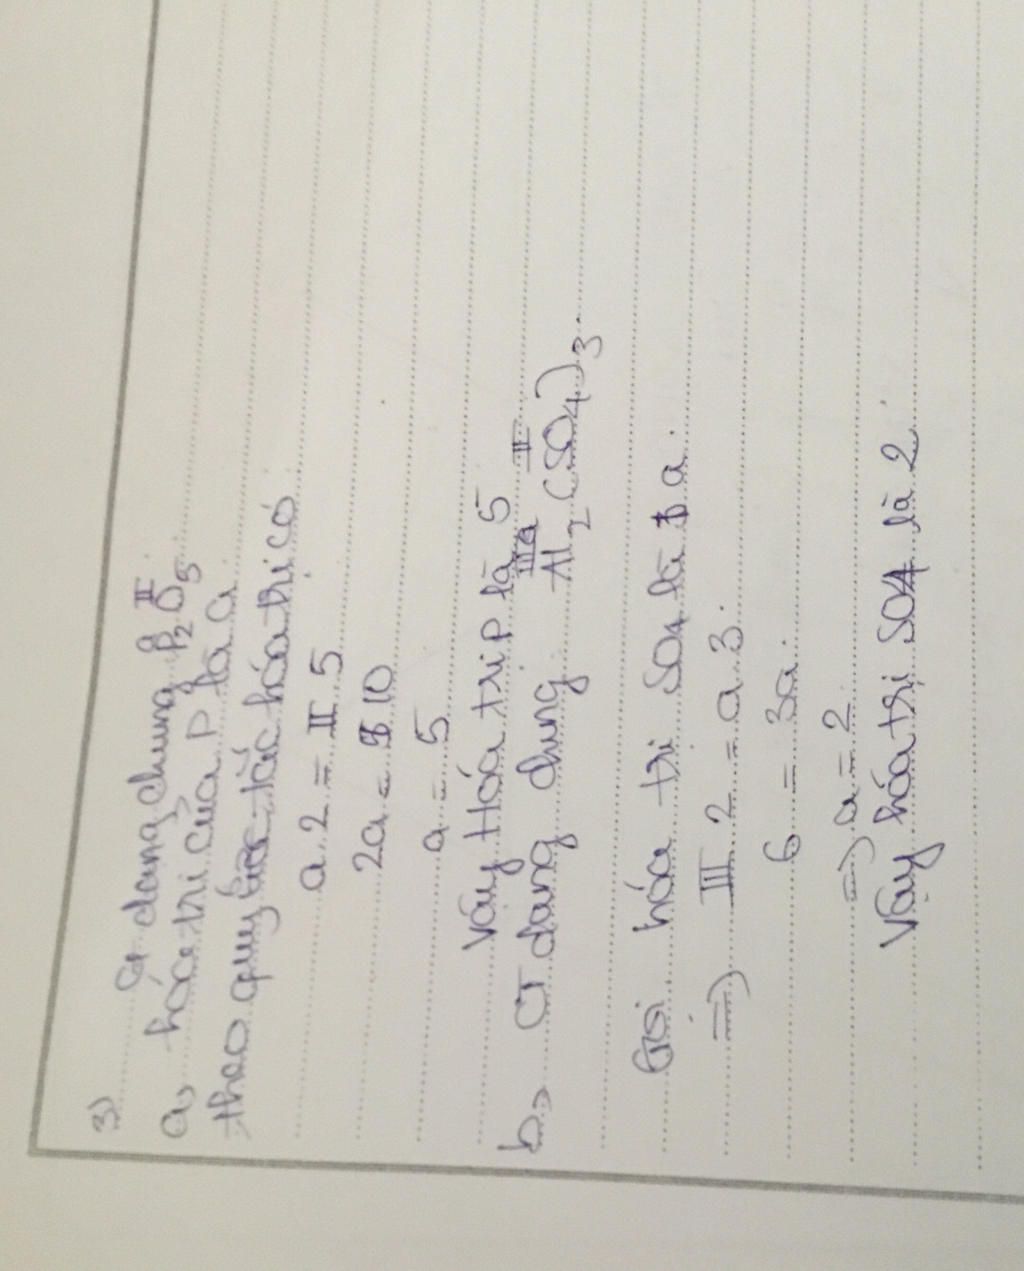 3)
CT dạng chung P₂O₅ a II
a, hóa trị của P là a
theo quy tắc hóa trị có
a.2 = II.5
2a = 10
a = 5
Vậy Hóa trị P là 5
b, CT dạng chung Al₂(SO₄)₃ III II
Gọi hóa trị SO₄ là a.
=) III.2 = a.3.
6 = 3a.
=) a = 2
Vậy hóa trị SO4 là 2.